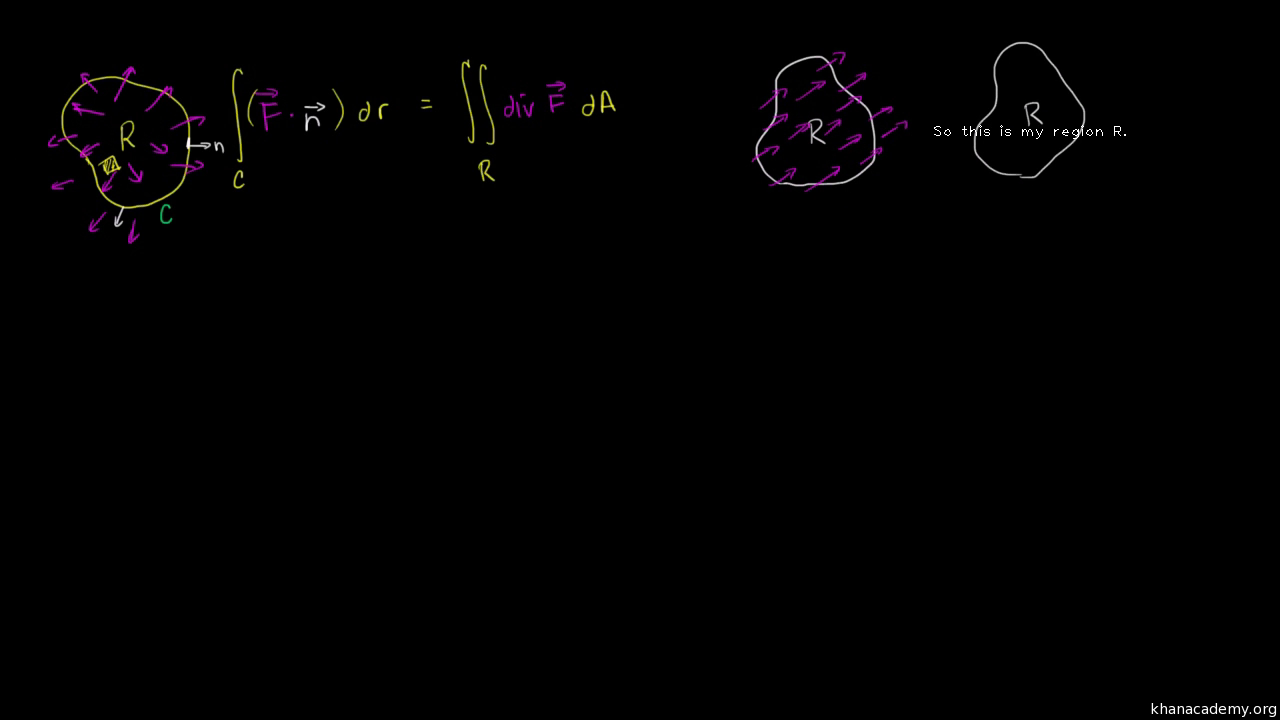 R
n
C
∫_C (F⃗ · n⃗) dr = ∬_R div F⃗ dA
R
R
So this is my region R.
khanacademy.org